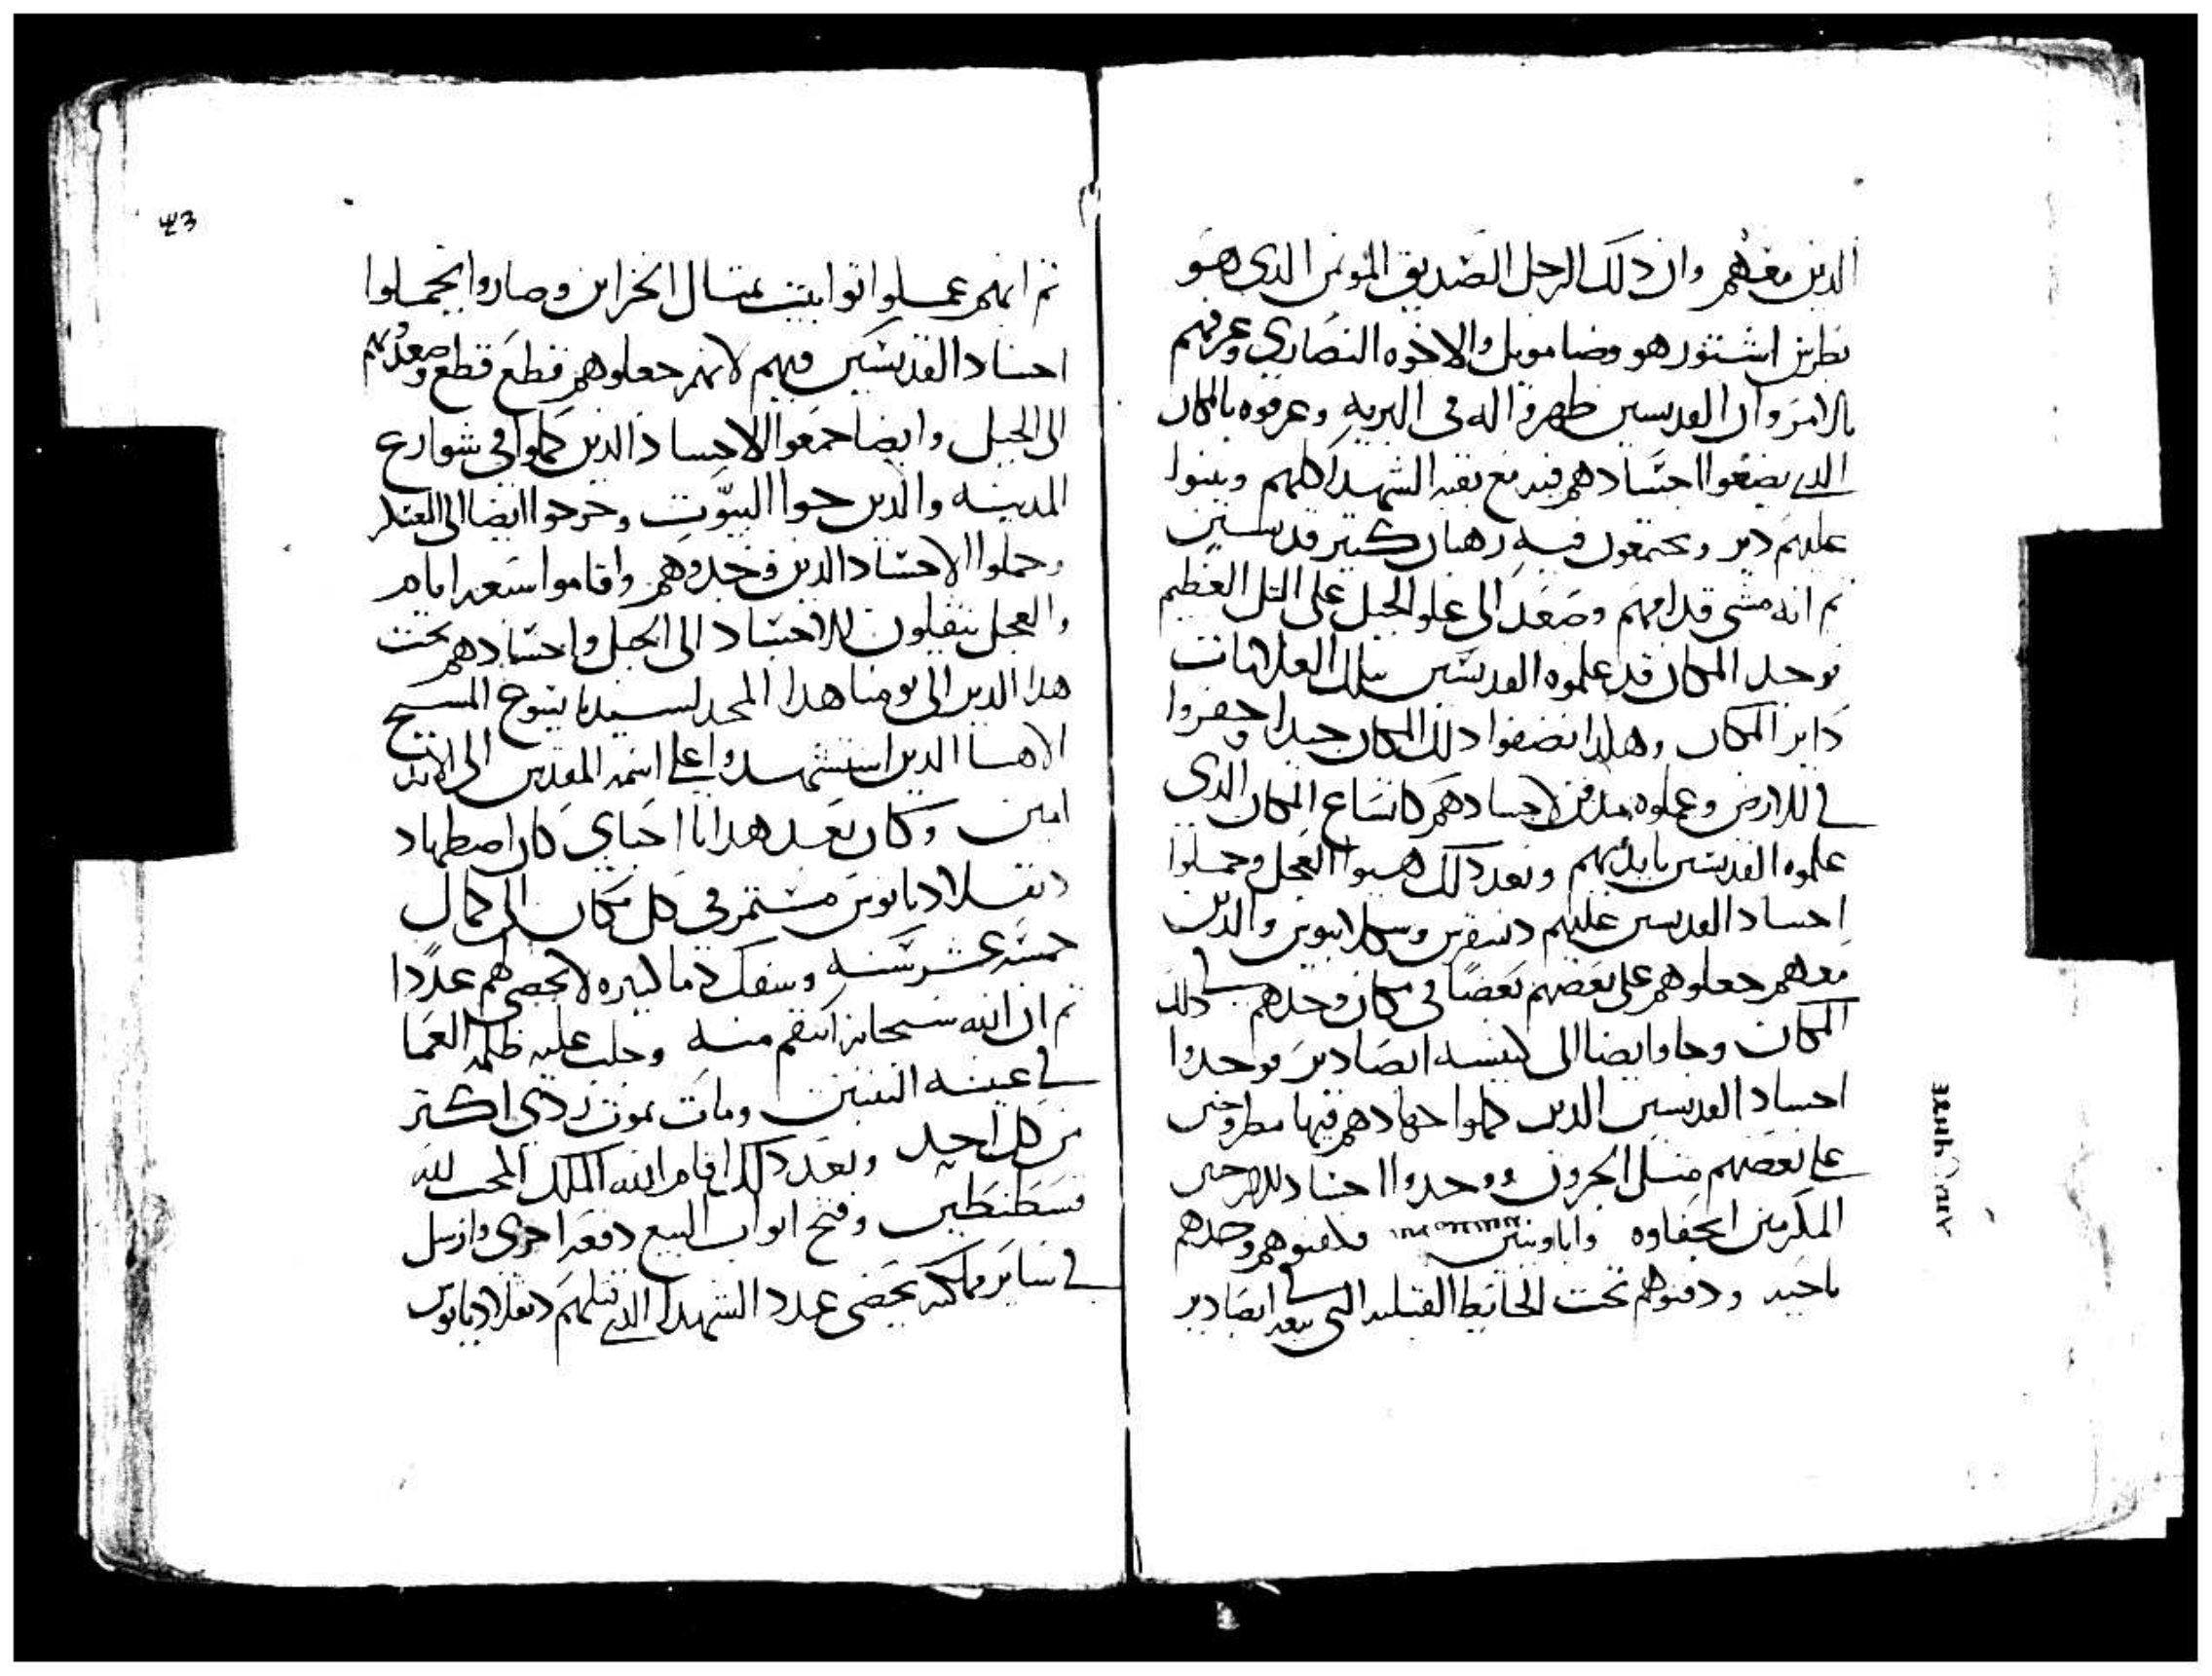 الدين معهم وان دلك الرجل الصديق المومن الدى هو
بطرس اشتور هو وصامويل والاخوه النصارى وعرفهم
بالامر وان القديسين ظهروا له فى البريه وعرفوه بالمكان
الدى يضعوا اجسادهم فيه مع بقية الشهدا كلهم ويبنوا
عليهم دير ويجتمعون فيه رهبان كتير قديسين
تم انه مشى قدامهم وصعد الى علو الجبل على التل العظيم
فوجد المكان قد علموه القديسين بتلك العلامات
داير المكان وهكدا نضفوا دلك المكان جيدا وحفروا
فى الارض وعملوه مدفن لاجسادهم كاتساع المكان الدى
علموه القديسين بايديهم وبعد دلك هيبوا العجل وحملوا
اجساد القديسين عليهم ديسقرس وسكلابيوس والدين
معهم جعلوهم على بعضهم بعضا فى مكان وحدهم فى دلك
المكان وجاوا ايضا الى كنيسه ابصادير فوجدوا
اجساد القديسين الدين كملوا جهادهم فيها مطروحين
على بعضهم متل الجروف ووجدوا اجساد
المكرمين الحفاوه واباونيس فدفنوهم وحدهم
ناحيه ودفنوهم تحت الحايط القبليه التى بيعة ابصادير
٤٣
تم انهم عملوا توابيت بمتال الخزاين وصاروا يحملوا
اجساد القديسين فيهم لانهم جعلوهم قطع قطع وصعدوهم
الى الجبل وايضا جمعوا الاجساد الدين كملوا فى شوارع
المدينه والدين جوا البيوت وخرجوا ايضا الى
وحملوا الاجساد الدين وجدوهم واقاموا سبعه ايام
والعجل ينقلون الاجساد الى الجبل واجسادهم تحت
هدا الدير الى يومنا هدا المجد لسيدنا يسوع المسيح
الاهنا الدين استشهدوا على اسمه المقدس الى الابد
امين وكان بعد هدا يا احباى كان اضطهاد
دقلاديانوس مستمر فى كل مكان الى كمال
خمسة عشر سنه وسفك دما كتيره لا يحصى لهم عددا
تم ان الله سبحانه انتقم منه وجلب عليه ظلمة العما
فى عينيه التنتين ومات بموت ردى اكتر
من كل احد وبعد دلك اقام الله الملك المحب لله
قسطنطين وفتح ابواب البيع دفعه اخرى وارسل
فى ساير مملكته يحصى عدد الشهدا الدى قتلهم دقلاديانوس